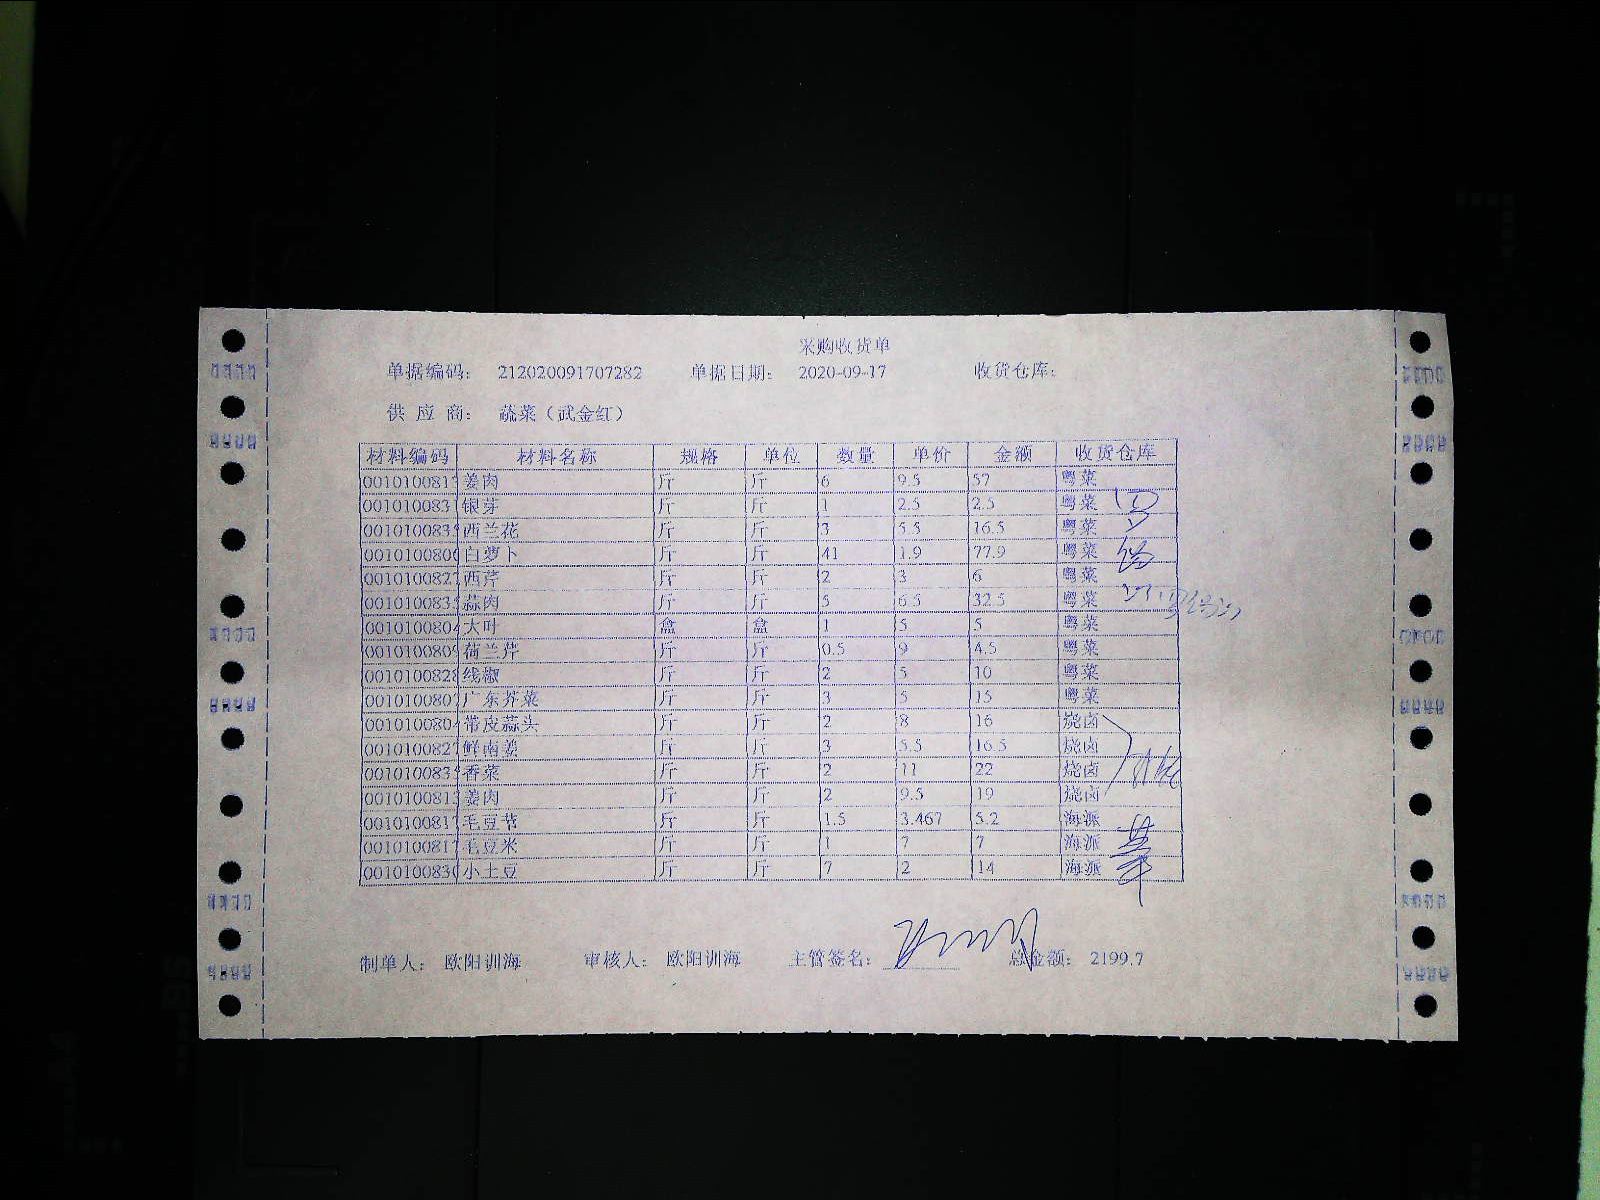 采购收货单
单据编码： 212020091707282 单据日期： 2020-09-17 收货仓库：
供 应 商： 蔬菜（武金红）
材料编码 材料名称 规格 单位 数量 单价 金额 收货仓库
001010081 姜肉 斤 斤 6 9.5 57 粤菜
001010083 银芽 斤 斤 1 2.5 2.5 粤菜
001010083 西兰花 斤 斤 3 5.5 16.5 粤菜
001010080 白萝卜 斤 斤 41 1.9 77.9 粤菜
001010082 西芹 斤 斤 2 3 6 粤菜
001010083 蒜肉 斤 斤 5 6.5 32.5 粤菜
001010080 大叶 盒 盒 1 5 5 粤菜
001010080 荷兰芹 斤 斤 0.5 9 4.5 粤菜
001010082 线椒 斤 斤 2 5 10 粤菜
001010080 广东芥菜 斤 斤 3 5 15 粤菜
001010080 带皮蒜头 斤 斤 2 8 16 烧卤
001010082 鲜南姜 斤 斤 3 5.5 16.5 烧卤
001010083 香菜 斤 斤 2 11 22 烧卤
001010081 姜肉 斤 斤 2 9.5 19 烧卤
001010081 毛豆节 斤 斤 1.5 3.467 5.2 海派
001010081 毛豆米 斤 斤 1 7 7 海派
001010083 小土豆 斤 斤 7 2 14 海派
制单人： 欧阳训海 审核人： 欧阳训海 主管签名： 总金额： 2199.7